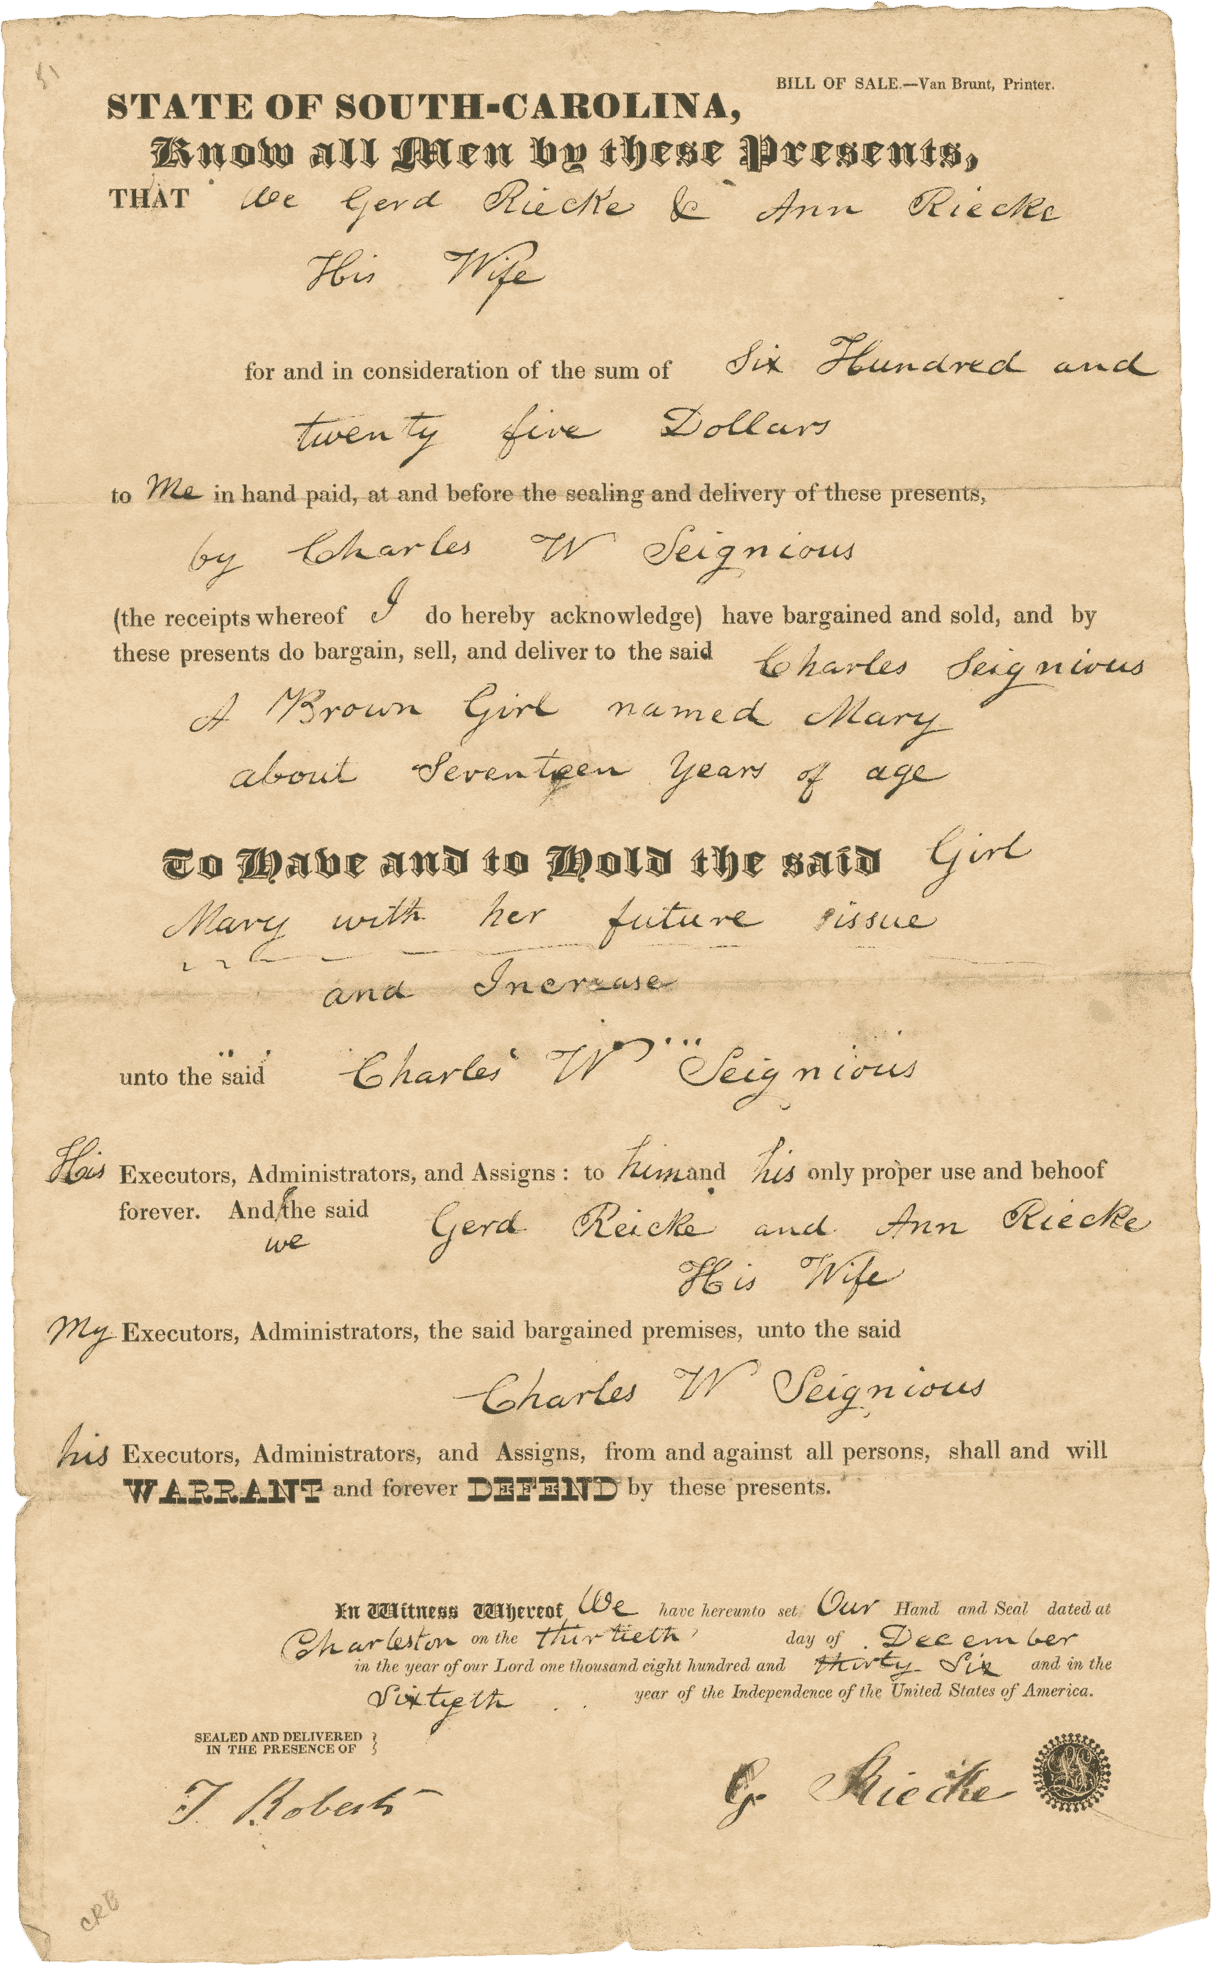 51
BILL OF SALE.—Van Brunt, Printer.
STATE OF SOUTH-CAROLINA,
Know all Men by these Presents,
THAT We Gerd Riecke & Ann Riecke
His Wife
for and in consideration of the sum of Six Hundred and
twenty five Dollars
to Me in hand paid, at and before the sealing and delivery of these presents,
by Charles W Seignious
(the receipts whereof I do hereby acknowledge) have bargained and sold, and by
these presents do bargain, sell, and deliver to the said Charles Seignious
A Brown Girl named Mary
about Seventeen Years of age
To Have and to Hold the said Girl
Mary with her future issue
and Increase
unto the said Charles W Seignious
His Executors, Administrators, and Assigns: to him and his only proper use and behoof
forever. And the said Gerd Reicke and Ann Riecke
we
His Wife
My Executors, Administrators, the said bargained premises, unto the said
Charles W Seignious
his Executors, Administrators, and Assigns, from and against all persons, shall and will
WARRANT and forever DEFEND by these presents.
In Witness Whereof We have hereunto set Our Hand and Seal dated at
Charleston on the thirtieth day of December
in the year of our Lord one thousand eight hundred and thirty Six and in the
Sixtyeth year of the Independence of the United States of America.
SEALED AND DELIVERED
IN THE PRESENCE OF
T Roberts
G. Riecke LS
CRB